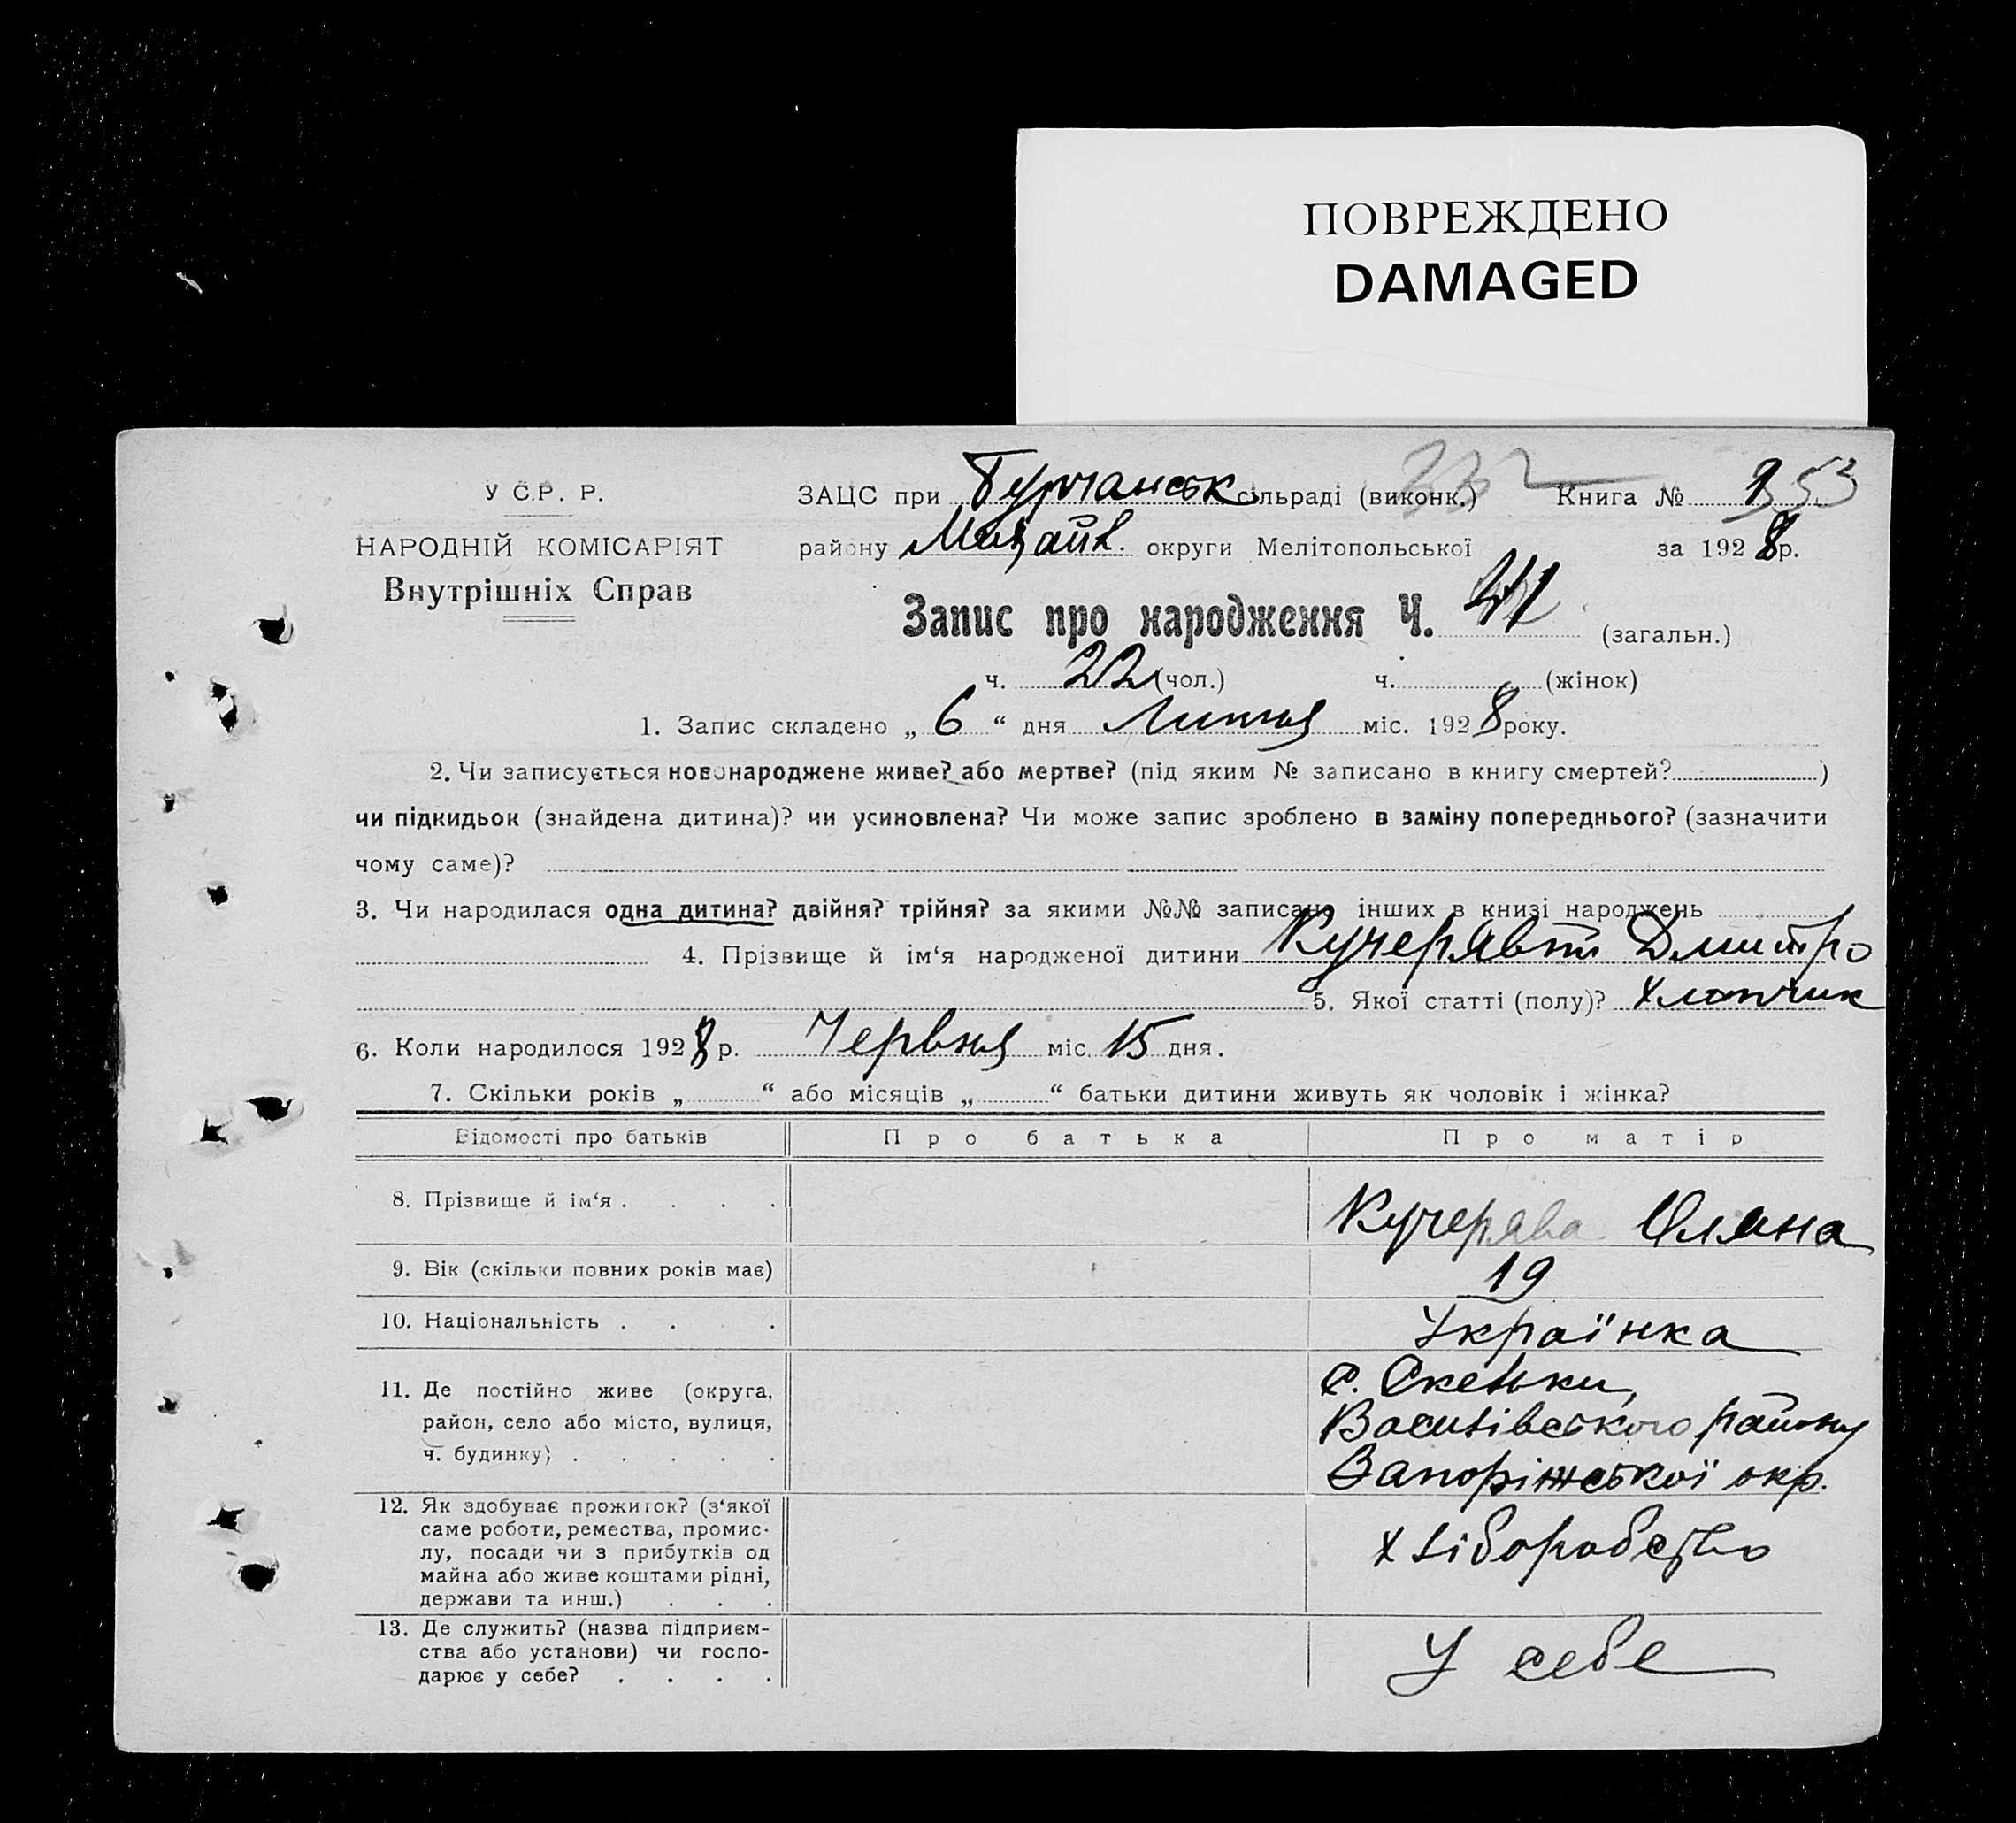 ПОВРЕЖДЕНО
DAMAGED
У С.Р. Р.
НАРОДНІЙ КОМІСАРІЯТ
Внутрішніх Справ
ЗАЦС при Бурчанськ. сільраді (виконк.) Книга № 1
району Михайл. округи Мелітопольської за 1928 р.
Запис про народження Ч. 41 (загальн.)
ч. 22 (чол.) ч. (жінок)
1. Запис складено „ 6 “ дня Липня міс. 1928 року.
2. Чи записується новонароджене живе? або мертве? (під яким № записано в книгу смертей? )
чи підкидьок (знайдена дитина)? чи усиновлена? Чи може запис зроблено в заміну попереднього? (зазначити
чому саме)?
3. Чи народилася одна дитина? двійня? трійня? за якими №№ записано інших в книзі народжень
4. Прізвище й ім‘я народженої дитини Кучерявий Дмитро
5. Якої статті (полу)? Хлопчик
6. Коли народилося 1928 р. Червня міс. 15 дня.
7. Скільки років „ “ або місяців „ “ батьки дитини живуть як чоловік і жінка?
Відомості про батьків Про батька Про матір
8. Прізвище й ім‘я . . . . Кучерява Оляна
9. Вік (скільки повних років має) 19
10. Національність . . . Українка
11. Де постійно живе (округа, район, село або місто, вулиця, ч. будинку) . . . . .
с. Скельки,
Василівського району
Запоріжської окр.
12. Як здобуває прожиток? (з‘якої
саме роботи, ремества, промис-
лу, посади чи з прибутків од
майна або живе коштами рідні,
держави та инш.) . . .
хліборобство
13. Де служить? (назва підприєм-
ства або установи) чи госпо-
дарює у себе? . . . .
У себе